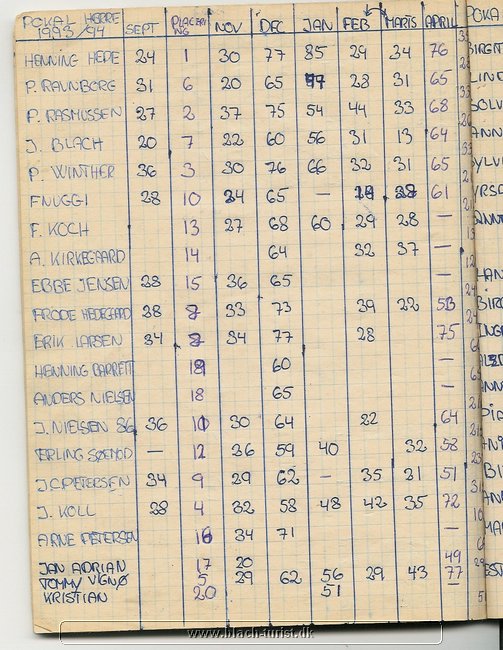 POKAL HERRE 1993/94 SEPT PLACERING NOV DEC JAN FEB MARTS APRIL
HENNING HEDE 24 1 30 77 85 29 34 76
P. RAVNBORG 31 6 20 65 77 28 31 65
P. RASMUSSEN 27 2 37 75 54 44 33 68
J. BLACH 20 7 22 60 56 31 13 64
P. WINTHER 36 3 30 76 66 32 31 65
FNUGGI 28 10 24 65 — 28 61
F. KOCH 13 27 68 60 29 28 —
A. KIRKEGAARD 14 64 32 37 —
EBBE JENSEN 28 15 36 65 —
FRODE HEDEGAARD 28 8 33 73 39 22 53
ERIK LARSEN 34 34 77 28 75
HENNING BARRETT 60 —
ANDERS NIELSEN 18 65 —
J. NIELSEN 86 36 30 64 22 64
ERLING SØEMOD — 12 36 59 40 32 58
J.C. PETERSEN 34 9 29 62 — 35 21 51
J. KOLL 28 4 32 58 48 42 35 72
ARNE PETERSEN 16 34 71 —
JAN ADRIAN 17 20 49
TOMMY VIGNØ 5 29 62 56 29 43 77
KRISTIAN 20 51 —
www.blach-turist.dk